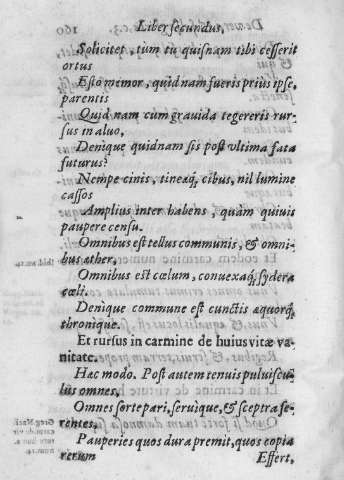 160
Liber secundus,
Solicitet, tùm tu quisnam tibi cesserit
ortus
Esto memor, quid nam fueris priùs ipse,
parentis
Quid nam cùm grauida tegereris rur-
sus in aluo,
Denique quidnam sis post vltima fata
futurus?
Nempe cinis, tineaq́; cibus, nil lumine
cassos
Amplius inter habens, quàm quiuis
paupere censu.
Omnibus est tellus communis, & omni-
bus æther,
Omnibus est cœlum, conuexaq́; sydera
cœli.
Denique commune est cunctis æquorq́;
thronique.
Et rursus in carmine de huius vitæ va-
nitate.
Hac modo. Post autem tenuis puluiscu-
lus omnes,
Omnes sorte pari, seruique, & sceptra fe-
rentes,
Greg. Nazi.
Pauperies quos dura premit, quos copia
rerum
Effert,